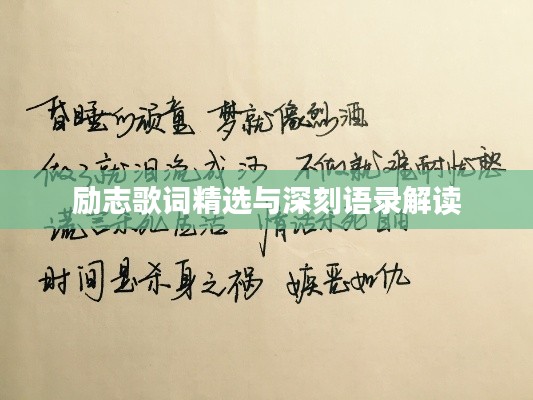 昏睡的顽童 梦就像烈酒
做了就泪流成河 不做就难耐忧愁
励志歌词精选与深刻语录解读
谎言杀死生活 情话杀死自由
时间是杀身之祸 嫉恶如仇